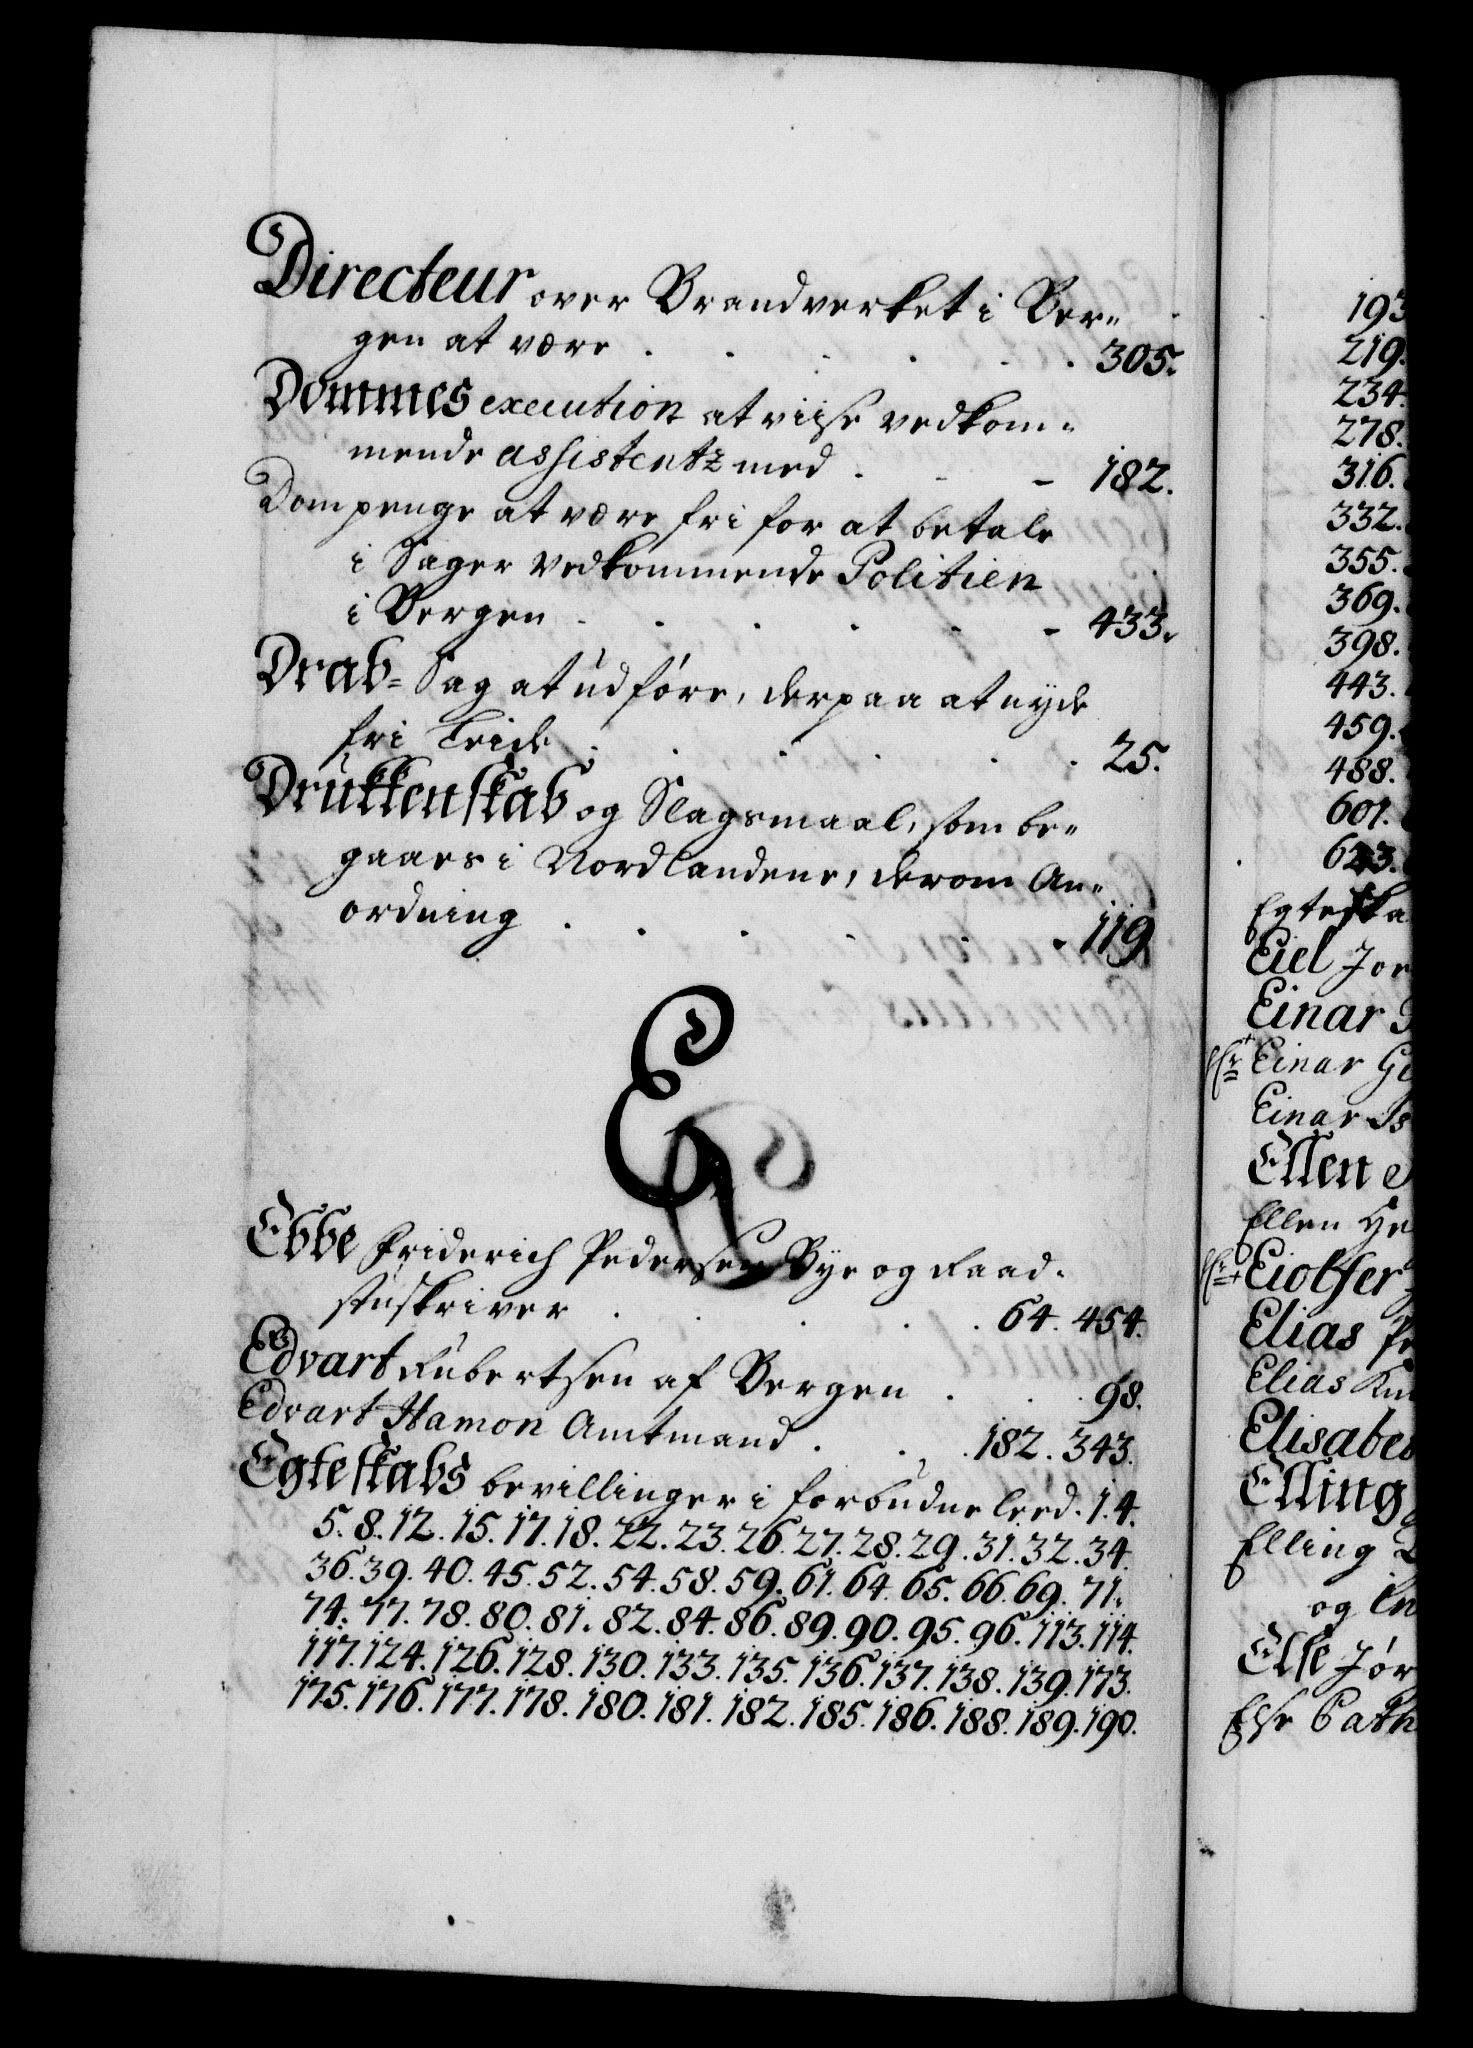 Directeur over Brandverket i Ber-
gen at være . . . . . . 305.
Dommes execution at viise vedkom-
mende assistentz med . - - 182.
Dompenge at være fri for at betale
i Sager vedkommende Politien
i Bergen . . . . . - 433.
Drab- Sag at udføre, derpaa at nyde
fri Leide . . . . . . 25.
Drukkenskab og Slagsmaal, som be-
gaaes i Nordlandene, derom An-
ordning . . . . . . 119
E
Ebbe Friderich Pedersen Bye og Raad-
stuskriver . . . . . 64. 454.
Edvart Rubertsen af Bergen . . 98.
Edvart Hamon Amtmand . . . 182. 343.
Egteskabs bevillinger i forbudne Leed. 1. 4.
5. 8. 12. 15. 17. 18. 22. 23. 26. 27. 28. 29. 31. 32. 34.
36. 39. 40. 45. 52. 54. 58. 59. 61. 64. 65. 66. 69. 71.
74. 77. 78. 80. 81. 82. 84. 86. 89. 90. 95. 96. 113. 114.
117. 124. 126. 128. 130. 133. 135. 136. 137. 138. 139. 173.
175. 176. 177. 178. 180. 181. 182. 185. 186. 188. 189. 190.
193
219.
234.
278.
316.
332.
355.
369.
398.
443.
459.
488.
601.
623.
Egteska
Eiel Jor
Einar
Einar Gi
Einar Is
Ellen
Ellen He
Eiolfer
Elias Pe
Elias Knu
Elisabe
Elling
Elling
og
Else Jør
Else Cath